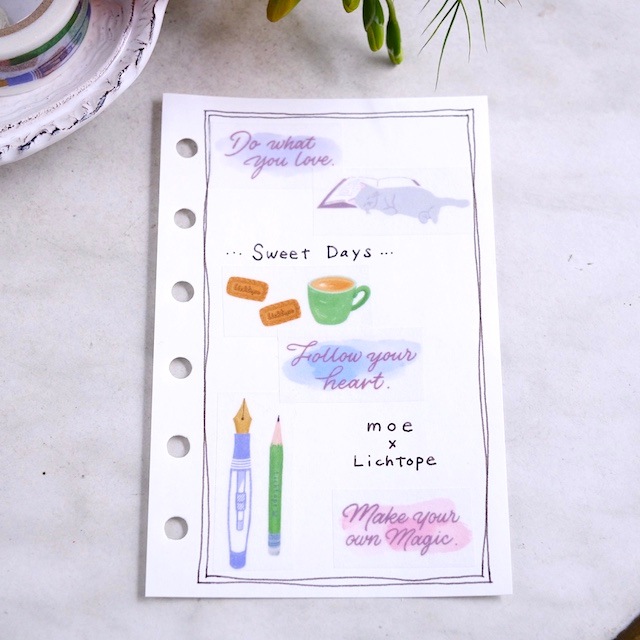 Do what
you love.
... Sweet Days ...
Follow your
heart.
moe
x
Lichtope
Make your
own Magic.